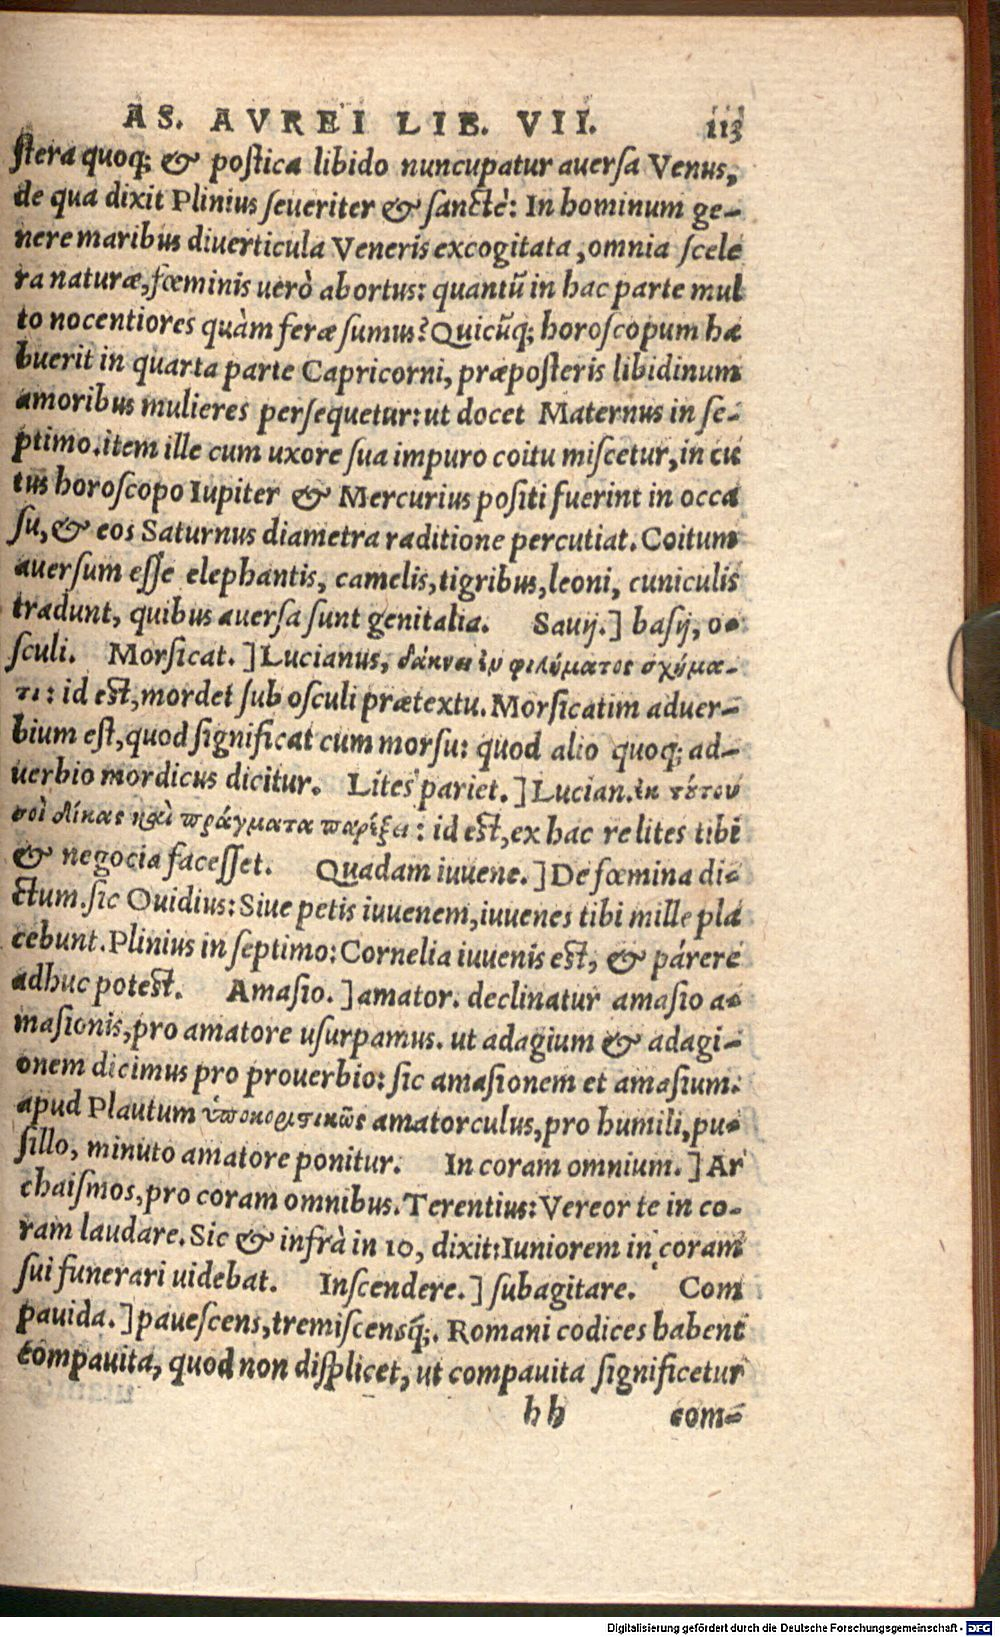 AS. AVREI LIB. VII. 113
ſtera quoq; & poſtica libido nuncupatur auerſa Venus,
de qua dixit Plinius ſeueriter & ſanctè: In hominum ge-
nere maribus diuerticula Veneris excogitata, omnia ſcele
ra naturæ, fœminis uerò abortus: quantũ in hac parte mul
to nocentiores quàm feræ ſumus? Quicũq; horoſcopum ha
buerit in quarta parte Capricorni, præpoſteris libidinum
amoribus mulieres perſequetur: ut docet Maternus in ſe-
ptimo. item ille cum uxore ſua impuro coitu miſcetur, in cu
ius horoſcopo Iupiter & Mercurius poſiti fuerint in occa
ſu, & eos Saturnus diametra raditione percutiat. Coitum
auerſum eſſe elephantis, camelis, tigribus, leoni, cuniculis
tradunt, quibus auerſa ſunt genitalia. Sauij.] baſij, o-
ſculi. Morſicat.] Lucianus, δάκνει ἐν φιλήματος σχήμα-
τι: id eſt, mordet ſub oſculi prætextu. Morſicatim aduer-
bium eſt, quod ſignificat cum morſu: quod alio quoq; ad-
uerbio mordicus dicitur. Lites pariet.] Lucian. ἐκ τούτου
σοὶ δίκας καὶ πράγματα παρέξει: id eſt, ex hac re lites tibi
& negocia faceſſet. Quadam iuuene.] De fœmina di-
ctum. ſic Ouidius: Siue petis iuuenem, iuuenes tibi mille pla
cebunt. Plinius in ſeptimo: Cornelia iuuenis eſt, & párere
adhuc poteſt. Amaſio.] amator. declinatur amaſio a-
maſionis, pro amatore uſurpamus. ut adagium & adagi-
onem dicimus pro prouerbio: ſic amaſionem et amaſium.
apud Plautum ὑποκοριστικῶς amatorculus, pro humili, pu-
ſillo, minuto amatore ponitur. In coram omnium.] Ar
chaiſmos, pro coram omnibus. Terentius: Vereor te in co-
ram laudare. Sic & infrà in 10, dixit: Iuniorem in coram
ſui funerari uidebat. Inſcendere.] ſubagitare. Com
pauida.] paueſcens, tremiſcensq́;. Romani codices habent
compauita, quod non diſplicet, ut compauita ſignificetur
hh com-
Digitalisierung gefördert durch die Deutsche Forschungsgemeinschaft - DFG